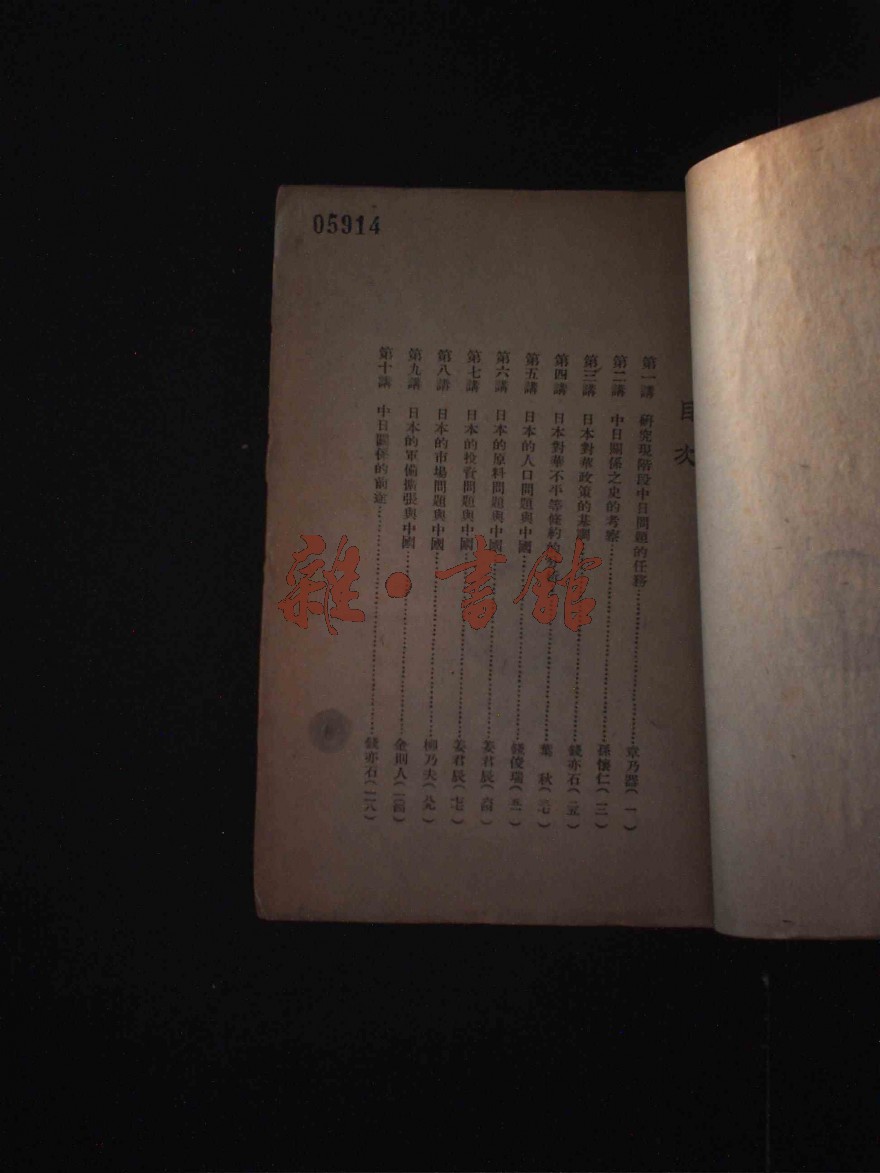 05914
目次
第一講 研究現階段中日問題的任務 章乃器(一)
第二講 中日關係之史的考察 孫懷仁(一三)
第三講 日本對華政策的基調 錢亦石(二五)
第四講 日本對華不平等條約的 葉 秋(三七)
第五講 日本的人口問題與中國 錢俊瑞(五一)
第六講 日本的原料問題與中國 姜君辰(六四)
第七講 日本的投資問題與中國 姜君辰(七七)
第八講 日本的市場問題與中國 柳乃夫(八九)
第九講 日本的軍備擴張與中國 金則人(一〇四)
第十講 中日關係的前途 錢亦石(一一八)
雜·書館